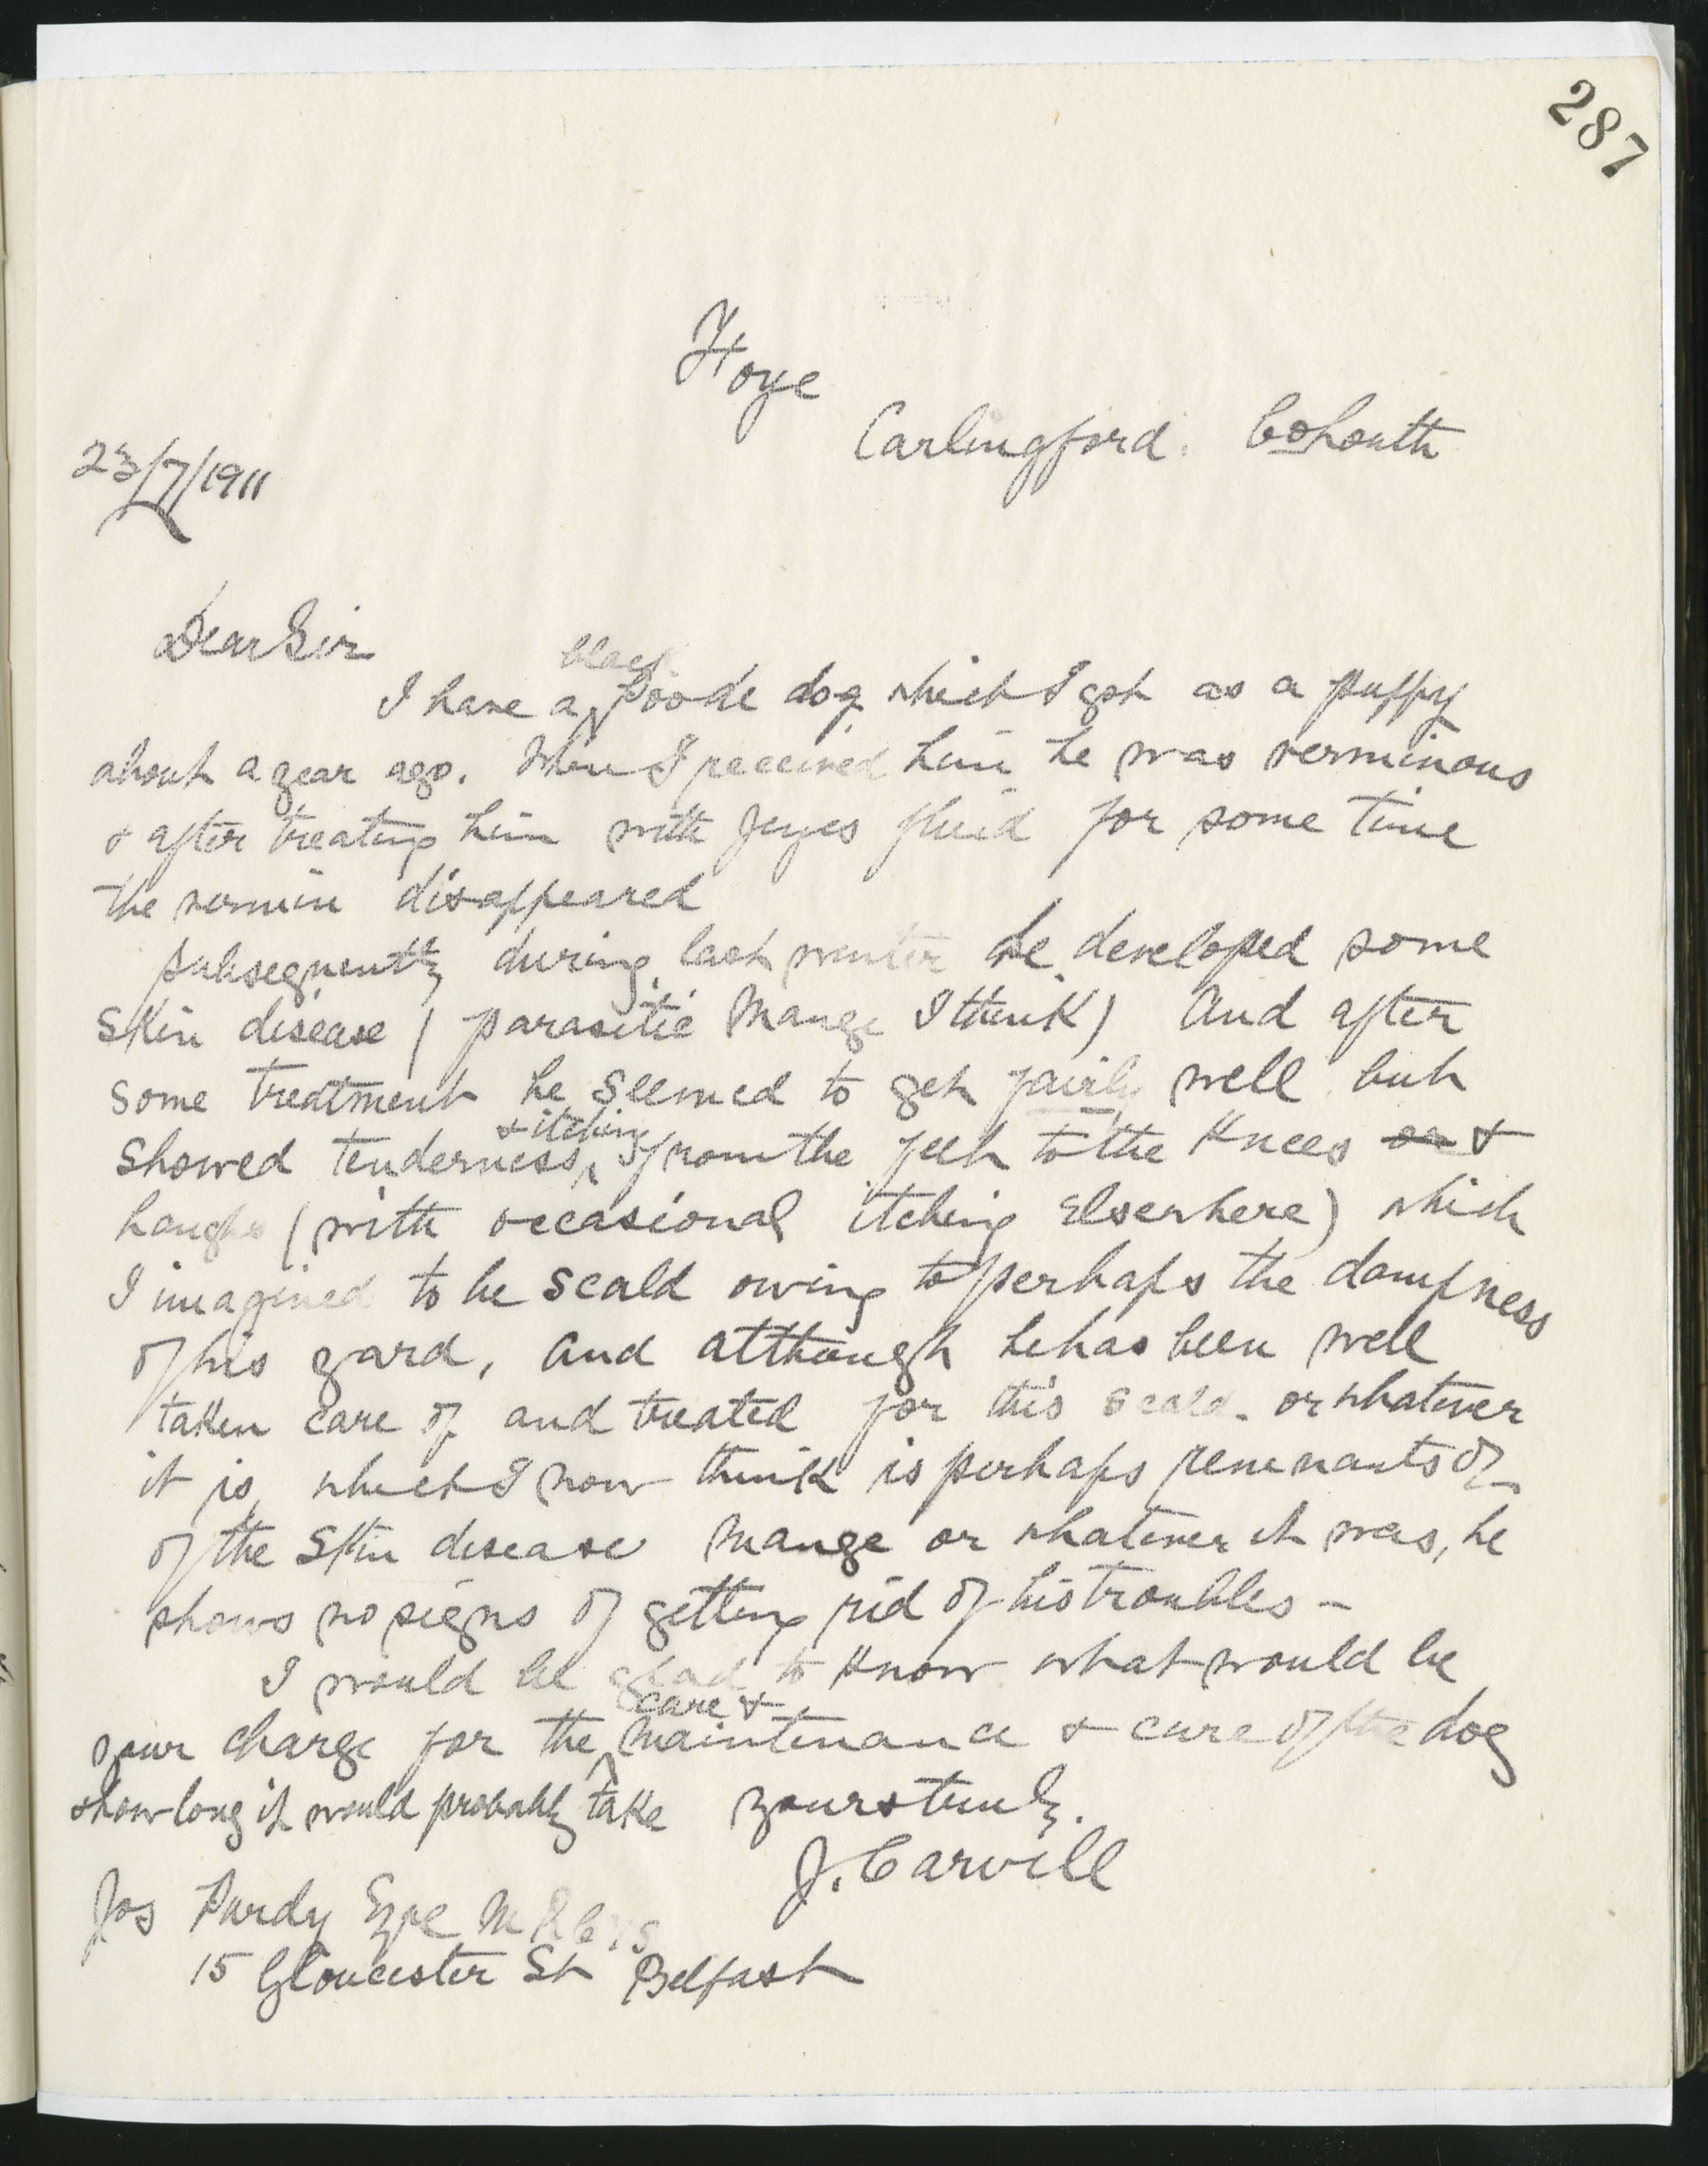 287
Foye
Carlingford. Co Louth
23/7/1911
Dear Sir
black
I have a poodle dog which I got as a puppy
about a year ago. When I received him he was verminous
& after treating him with Jeyes fluid for some time
the vermin disappeared
Subsequently during last winter he developed some
skin disease (parasitic mange I think) And after
some treatment he seemed to get fairly well but
& itching
showed tenderness from the feet to the knees or &
houghs (with occasional itching elsewhere) which
I imagined to be scald owing to perhaps the dampness
of his yard, and although he has been well
taken care of and treated for this scald or whatever
it is, which I now think is perhaps remnants of
of the skin disease mange or whatever it was, he
shows no signs of getting rid of his troubles -
I would be glad to know what would be
care &
your charge for the maintenance & cure of the dog
& how long it would probably take yours truly.
J. Carvill
Jos Purdy Esqre MRCVS
15 Gloucester St Belfast